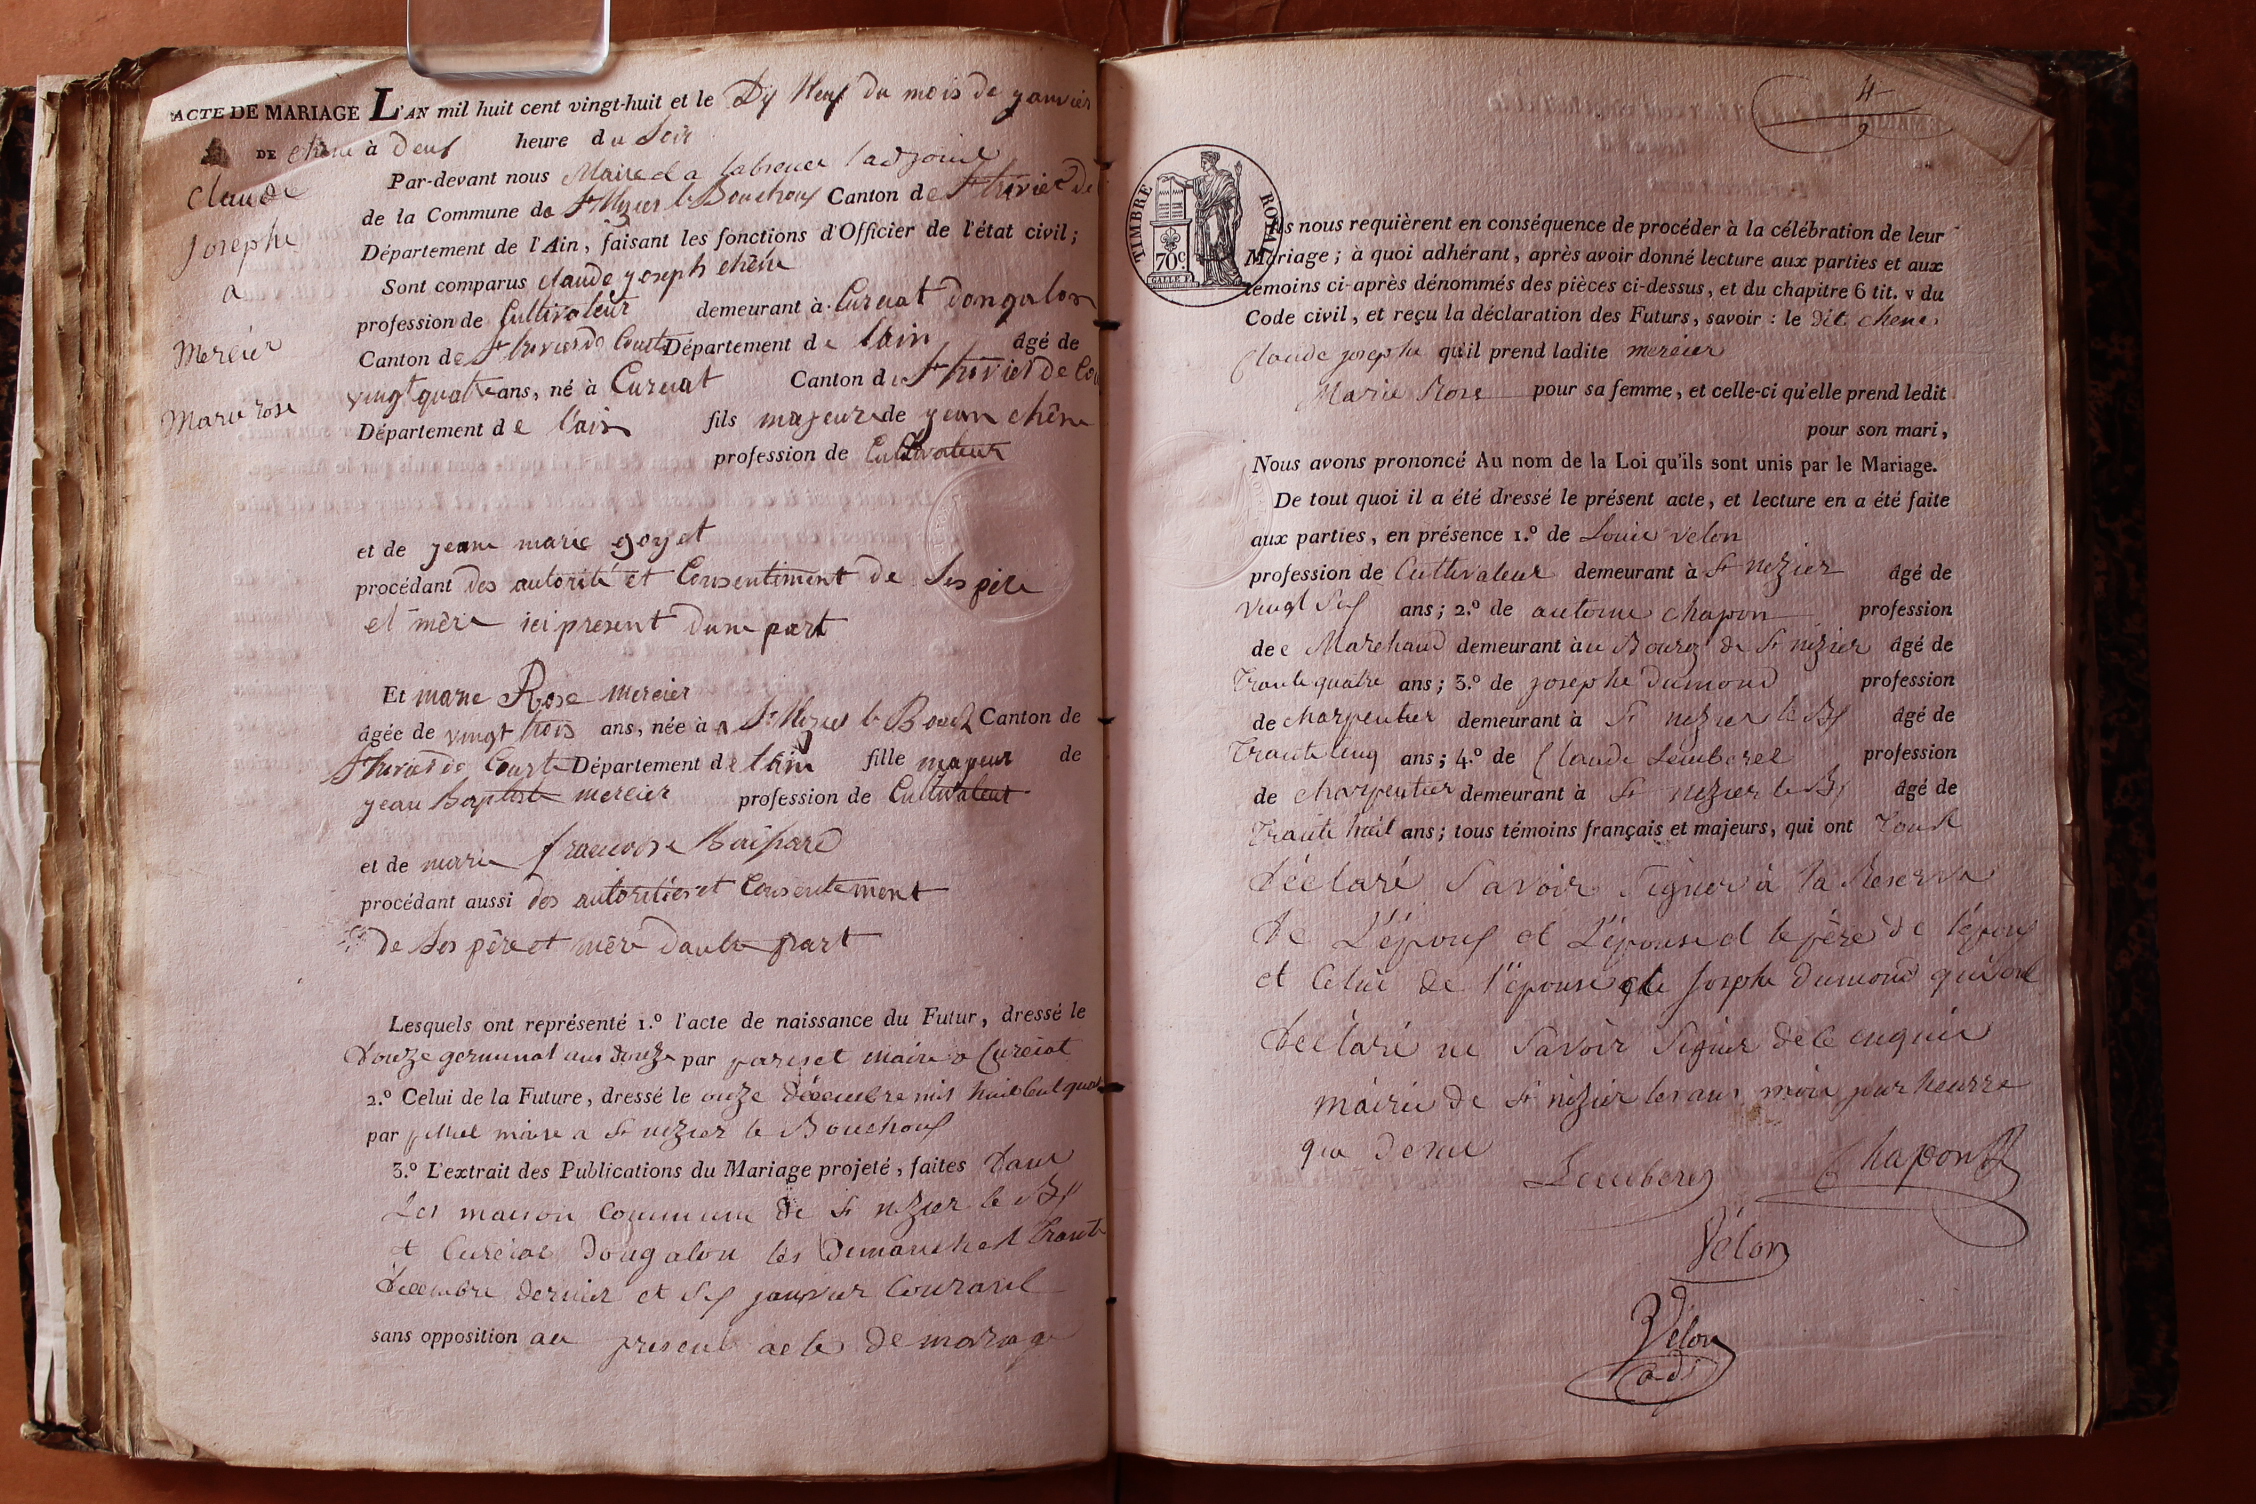 ACTE DE MARIAGE L'AN mil huit cent vingt-huit et le Dix Neuf du mois de janvier
DE chêne à Deux heure du Soir
Par-devant nous Maire a labsence ladjoint
de la Commune de St Nizier le Bouchoux Canton de St trivier de
Département de l'Ain, faisant les fonctions d'Officier de l'état civil;
Sont comparus claude joseph chêne
profession de Cultivateur demeurant à Curciat dongalon
Canton de St trivier de Courtes Département de lain âgé de
vingt quatre ans, né à Curciat Canton de St trivier de Cou
Département de l'ain fils majeur de jean chêne
profession de Cultivateur
et de jeanne marie goyet
procédant des autorité et Consentiment de Ses père
et mère ici present dune part
Et marie Rose mercier
âgée de vingt trois ans, née à St Nizier le Bouch Canton de
St trivier de Courte Département de lain fille majeur de
jean Baptiste mercier profession de Cultivateur
et de marie francoise
procédant aussi des autorités et Consentement
de Ses père et mère dautre part
Lesquels ont représenté 1.º l'acte de naissance du Futur, dressé le
douze germinal ans douze par maire a Curciat
2.º Celui de la Future, dressé le onze décembre mil huit cent quat
par maire a St nizier le Bouchoux
3.º L'extrait des Publications du Mariage projeté, faites dans
Les maison commune de St nizier le Bx
et Curciat Dongalon les Dimanche trante
décembre dernier et Six janvier Courant
sans opposition au present acte de mariage
claude
josephe
a
mercier
marie rose
4
TIMBRE ROYAL
70 c
Ils nous requièrent en conséquence de procéder à la célébration de leur
Mariage; à quoi adhérant, après avoir donné lecture aux parties et aux
témoins ci-après dénommés des pièces ci-dessus, et du chapitre 6 tit. v du
Code civil, et reçu la déclaration des Futurs, savoir: le dit chene
Claude josephe qu'il prend ladite mercier
Marie Rose pour sa femme, et celle-ci qu'elle prend ledit
pour son mari,
Nous avons prononcé Au nom de la Loi qu'ils sont unis par le Mariage.
De tout quoi il a été dressé le présent acte, et lecture en a été faite
aux parties, en présence 1.º de Louis Velon
profession de Cultivateur demeurant à St nizier âgé de
vingt Six ans; 2.º de antoine chapon profession
de Marchand demeurant au Bourg de St nizier âgé de
Trante quatre ans; 3.º de josephe dumond profession
de charpentier demeurant à St nizier le Bx âgé de
Trante Cinq ans; 4.º de Claude profession
de charpentier demeurant à St nizier le Bx âgé de
Trante huit ans; tous témoins français et majeurs, qui ont Tous
déclaré Savoir Signer à la Reserve
de L'époux et L'épouse et le père de l'époux
et Celui de l'épouse et de Josephe dumond qui ont
déclaré ne Savoir Signer de ce enquis
mairie de St nizier les ans mois jour heurre
que dessu
Chapon
Vélon
Vélon
adj